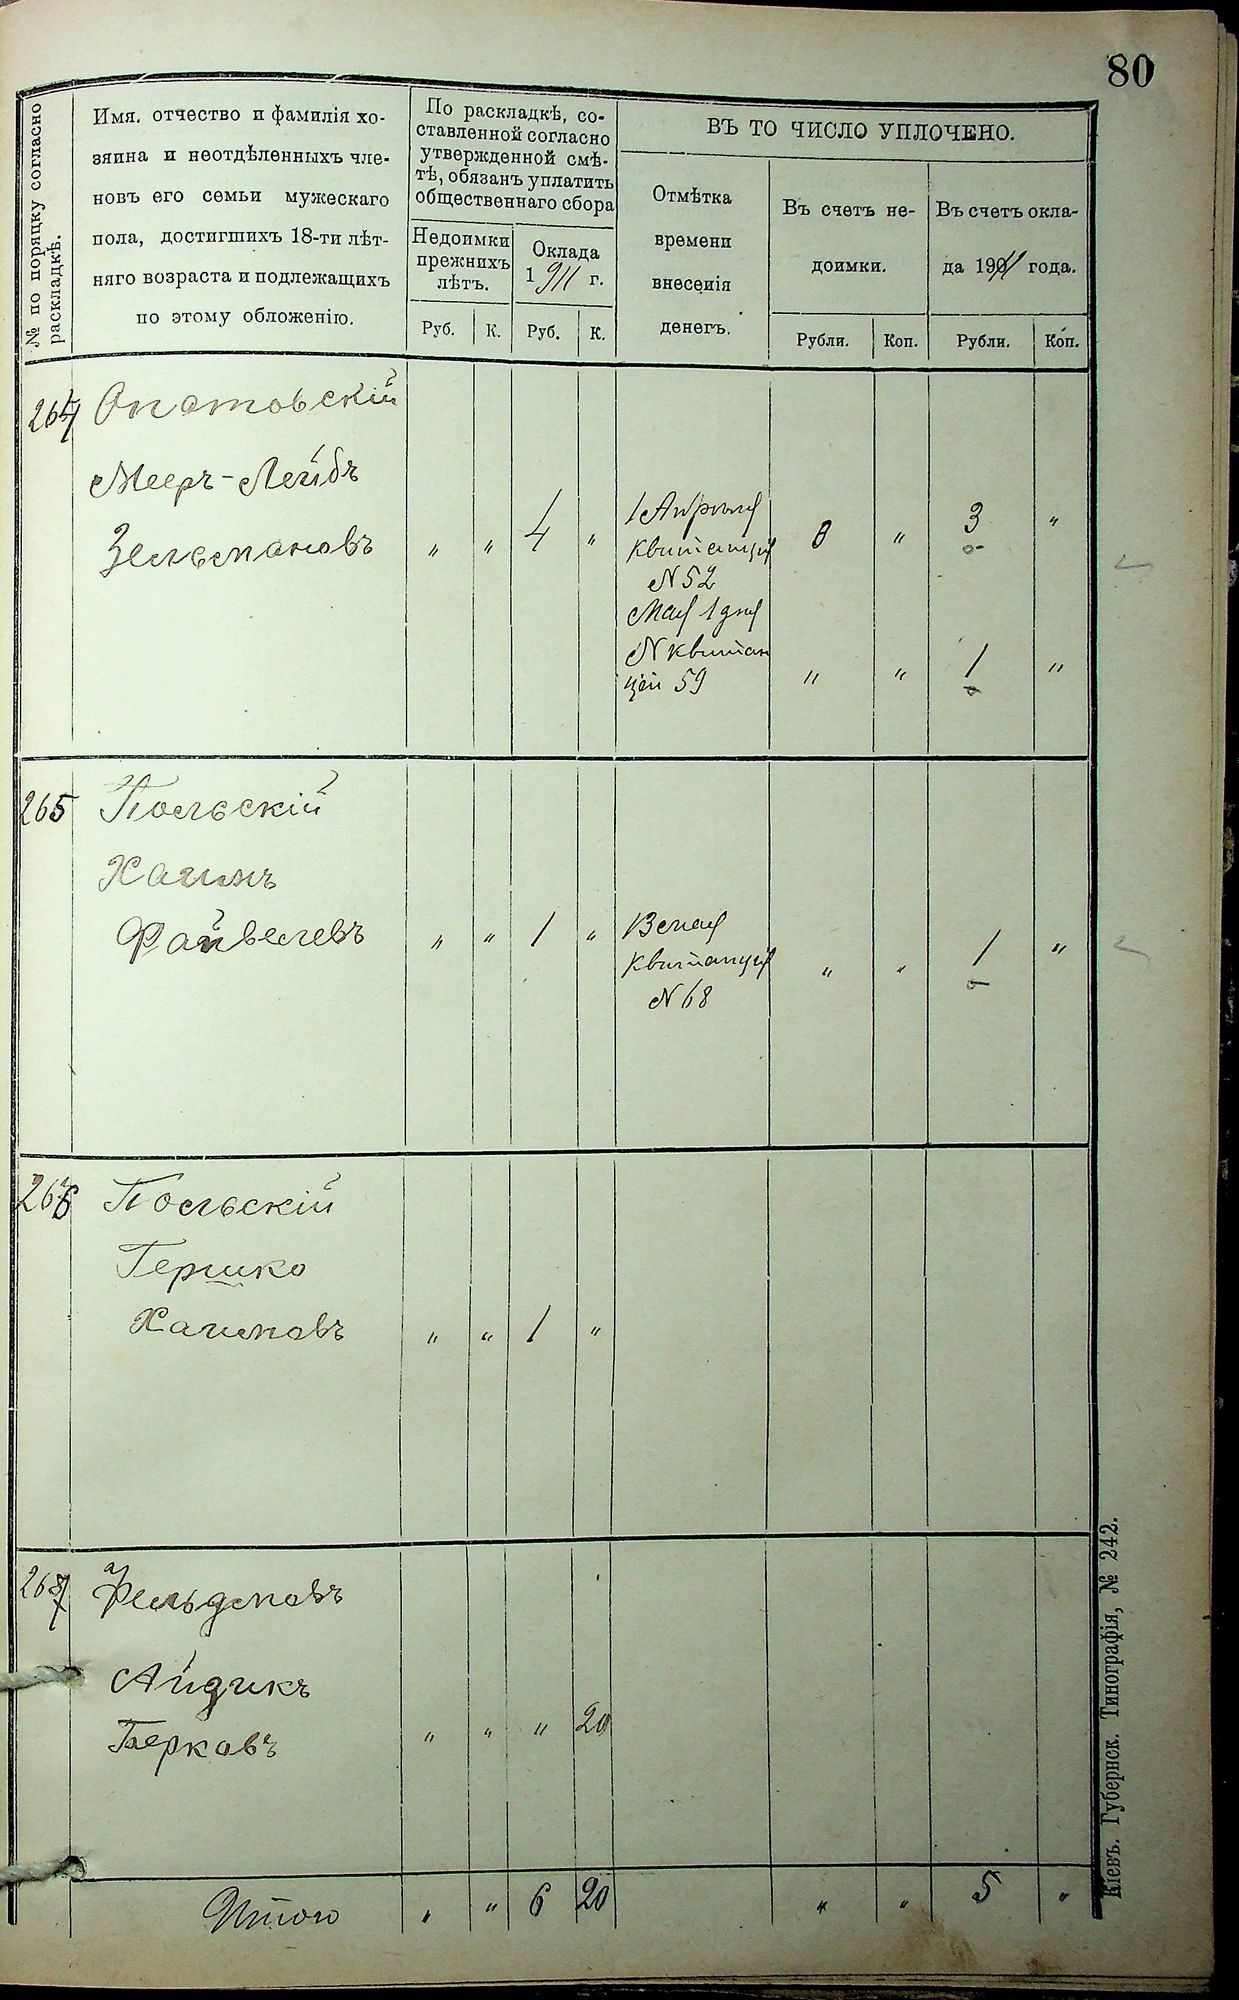 80
№ по поряцку согласно
раскладкѣ.
Имя. отчество и фамилія хо-
зяина и неотдѣленныхъ чле-
новъ его семьи мужескаго
пола, достигшихъ 18-ти лѣт-
няго возраста и подлежащихъ
по этому обложенію.
По раскладкѣ, со-
ставленной согласно
утвержденной смѣ-
тѣ, обязанъ уплатить
общественнаго сбора
Недоимки
прежнихъ
лѣтъ.
Оклада
1911 г.
Руб. К. Руб. К.
ВЪ ТО ЧИСЛО УПЛОЧЕНО.
Отмѣтка
времени
внесенія
денегъ.
Въ счетъ не-
доимки.
Въ счетъ окла-
да 1911 года.
Рубли. Коп. Рубли. Коп.
264 Опатовскій
Мееръ-Лейбъ
Зельмановъ " " 4 "
1 Апрѣля
квитанція " 3 "
N 52
Мая 1 дня
N квитан
цій 59 " " 1 "
265 Польскій
Хаимъ
Файвелевъ " " 1 "
квитанція " " 1 "
N 68
266 Польскій
Гершко
Хаимовъ " " 1 "
267
Айзикъ
Берковъ " " " 20
Итого " " 6 20 " " 5 "
Кіевъ. Губернск. Типографія, № 242.